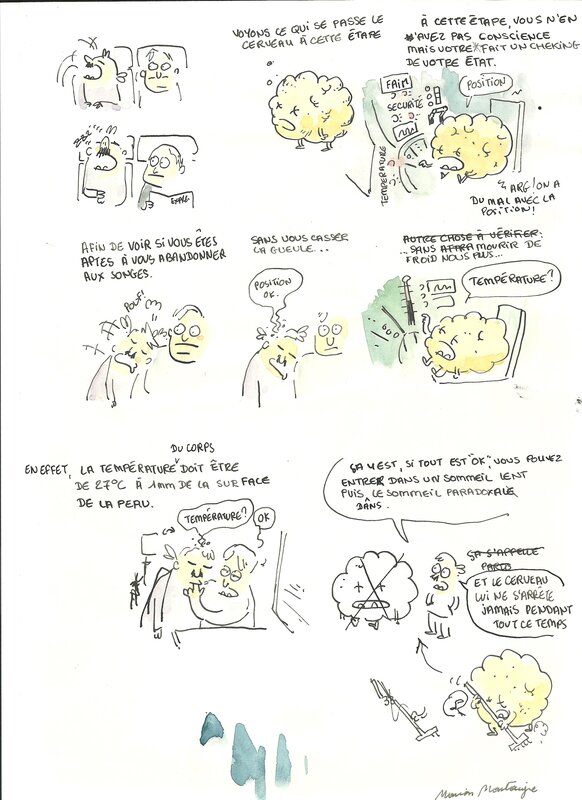 VOYONS CE QUI SE PASSE LE
CERVEAU À CETTE ÉTAPE
À CETTE ÉTAPE, VOUS N'EN
N'AVEZ PAS CONSCIENCE
MAIS VOTRE FAIT UN CHEKING
DE VOTRE ÉTAT.
zzz
FAIM
SÉCURITÉ
TEMPÉRATURE
POSITION
ARG! ON A
DU MAL AVEC LA
POSITION!
AFIN DE VOIR SI VOUS ÊTES
APTES À VOUS ABANDONNER
AUX SONGES.
POUF!
SANS VOUS CASSER
LA GUEULE...
POSITION
OK.
AUTRE CHOSE À VÉRIFIER:
...SANS ATTRA MOURIR DE
FROID NOUS PLUS...
TEMPÉRATURE?
DU CORPS
EN EFFET, LA TEMPÉRATURE DOIT ÊTRE
DE 27°C À 1MM DE LA SURFACE
DE LA PEAU.
TEMPÉRATURE?
OK
ÇA Y EST, SI TOUT EST "OK", VOUS POUVEZ
ENTRER DANS UN SOMMEIL LENT
PUIS, LE SOMMEIL PARADOXALE
DANS.
ÇA S'APPELLE
ET LE CERVEAU
LUI NE S'ARRÊTE
JAMAIS PENDANT
TOUT CE TEMPS
Marion Montaigne